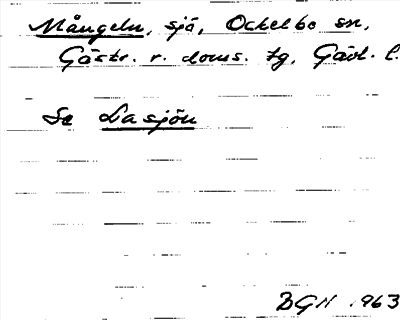 Mången, sjö, Ockelbo sn,
Gästr. v. doms. tg, Gävl. l.
Se Lasjön
BGN 1963